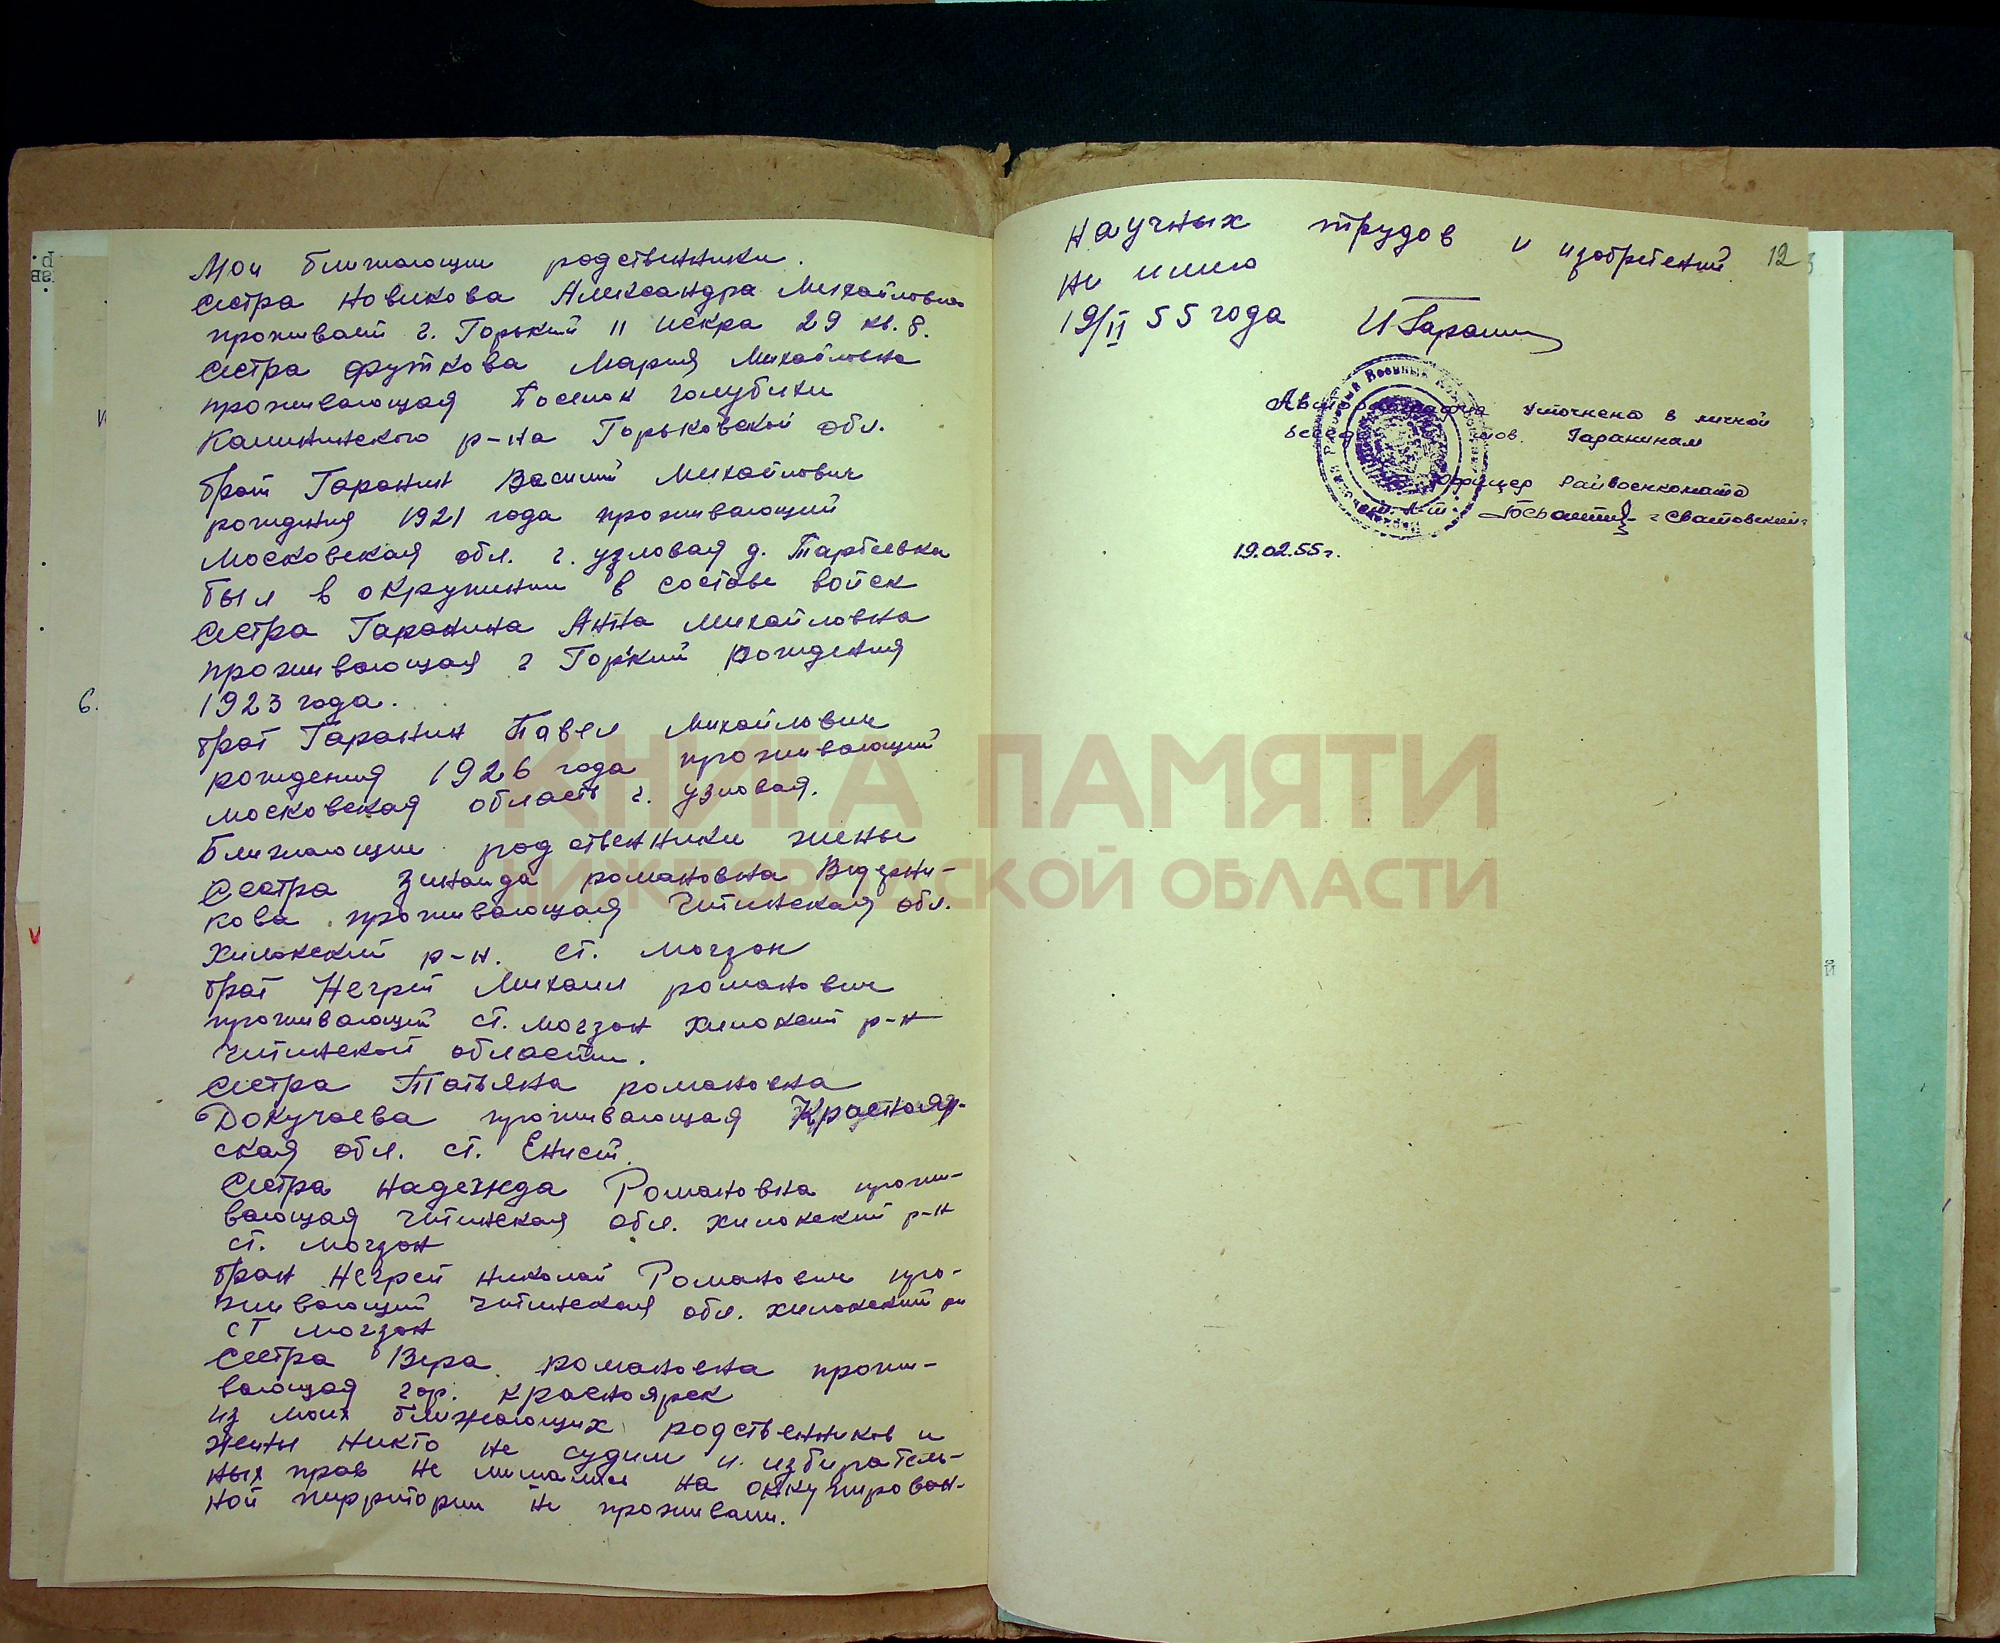 Мои ближающие родственники.
сестра Новикова Александра Михайловна
проживает г. Горький II Искра 29 кв. 8.
сестра Футкова Мария Михайловна
проживающая Поселок голубики
Калининского р-на Горьковской обл.
брат Гаранин Василий Михайлович
рождения 1921 года проживающий
Московская обл. г. узловая д. Тарбеевка
был в окружении в составе войск
Сестра Гаранина Анна Михайловна
проживающая г Горький рождения
1923 года.
брат Гаранин Павел Михайлович
рождения 1926 года проживающий
московская область г. узловая.
Ближающие родственники жены
Сестра Зинаида романовна Ведерни-
кова проживающая Читинская обл.
Хилокский р-н. ст. могзон
брат Негрей Михаил романович
проживающий ст. могзон хилокский р-н
читинской области.
Сестра Татьяна романовна
Докучаева проживающая Краснояр-
ская обл. ст. Енисей.
Сестра надежда Романовна прожи-
вающая читинская обл. хилокский р-н
ст. могзон
брат Негрей николай Романович про-
живающий читинская обл. хилокский рн
ст могзон
Сестра Вера романовна прожи-
вающая гор. красноярск
из моих ближающих родственников и
жены никто не судим и избиратель-
ных прав не лишались на оккупирован-
ной территории не проживали.
научных трудов и изобретений
не имею
19/II 55 года И Гаранин
12
Автобиография уточнена в личной
беседе тов. Гараниным
Офицер Райвоенкомата
19.02.55г.
6.
КНИГА ПАМЯТИ
НИЖЕГОРОДСКОЙ ОБЛАСТИ